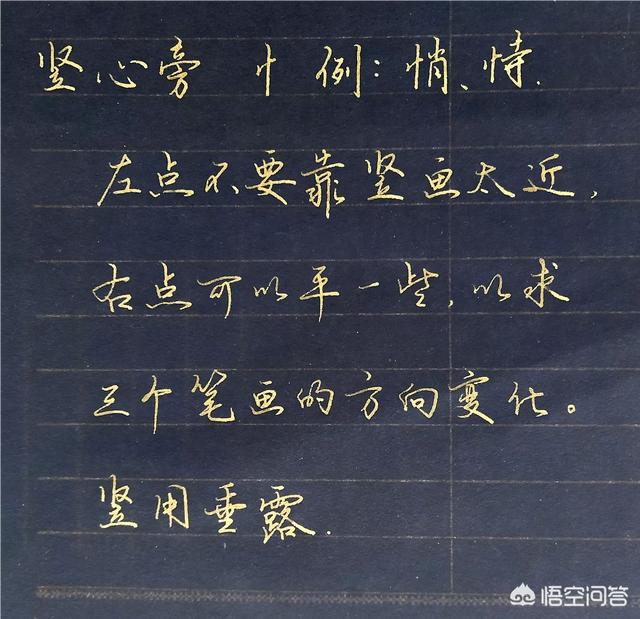 竖心旁 忄 例：悄、恃.
左点不要靠竖画太近，
右点可以平一些，以求
三个笔画的方向变化。
竖用垂露.
悟空问答